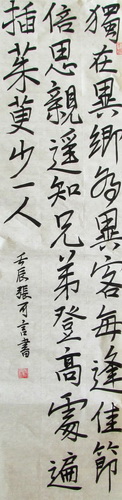 獨在異鄉為異客每逢佳節
倍思親遥知兄弟登高處遍
插茱萸少一人
壬辰張可言書